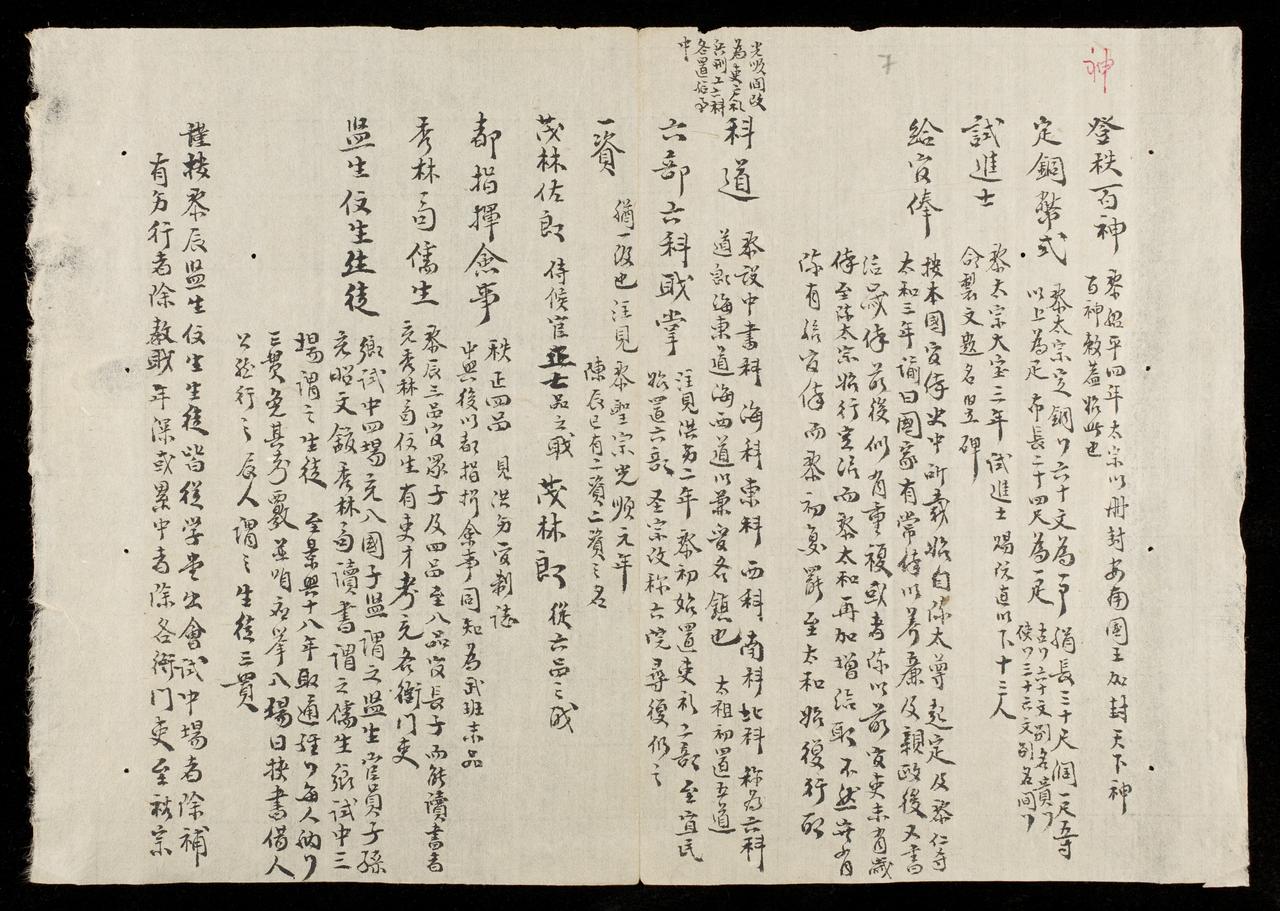 神
7
登秩百神 黎紹平四年太宗以册封安南國王加封天下神
百神敕蓋始此也
定銅幣式 黎太宗定銅以六十文為 絹長三十尺濶一尺五寸
以上為疋 布長二十四尺為一疋
試進士 黎太宗大宝三年試進士賜阮直以下十三人
命製文題名竪碑
給官俸 按本國官俸史中所載始自陳太尊起定及黎仁宗
太和三年諭曰國家有常俸以养廉及親政後又書
給歲俸前後似有重複或者陳以前官吏未有歲
俸至陳太宗始行定給而黎太和再加增給耶不然岂有
陳有給官俸而黎初复罷至太和始復行耶
光順間改
為吏戶礼
兵刑工六科
各置給事
中
科道 黎設中書科海科東科西科南科北科称为六科
道 海東道海西道以兼管各鎮也 太祖初置五道
六部六科職掌 注見洪 二年黎初始置吏礼二部至宜民
始置六部 圣宗改称六院尋復仍之
一資 猶一級也注見黎聖宗光順元年
陳辰已有一資二資之名
茂林佐郎 侍候官正七品之職 茂林郎 從六品之職
都指揮僉事 秩正四品 見洪 官制誌
中興後以都指揮僉事同知為武班未品
秀林局儒生 黎辰三品官眾子及四品至八品官長子而能讀書者
充秀林局仕生有吏才考充各衙門吏
监生仕生生徒 鄉試中四場充入國子监謂之监生官員子孫
充昭文館秀林局讀書謂之儒生鄉試中三
場謂之生徒 至景興十八年取通經 每人納
三貫免其 覆並咱 入場曰挟書借人
公 行之辰人謂之生徒三貫
謹按黎辰监生仕生生徒皆從学 出會試中場者除補
有 行者除教職年深或累中者除各衙門吏至裕宗